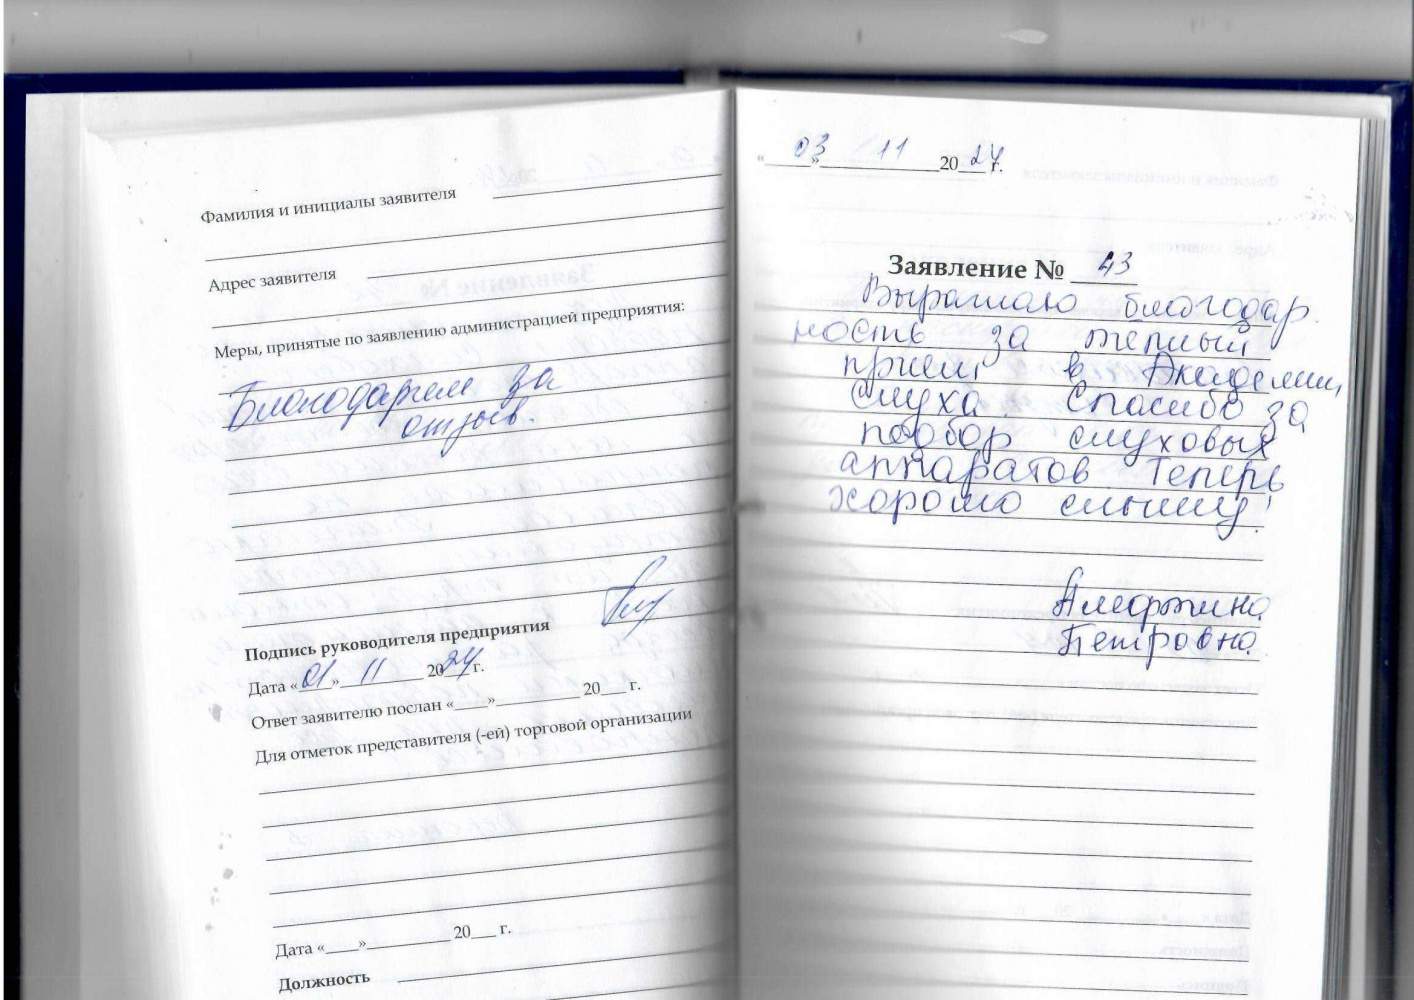 Фамилия и инициалы заявителя
Адрес заявителя
Меры, принятые по заявлению администрацией предприятия:
Благодарим за
отзыв.
Подпись руководителя предприятия
Дата «01» 11 2024 г.
Ответ заявителю послан «___»_________ 20___ г.
Для отметок представителя (-ей) торговой организации
Дата «___»_________ 20___ г.
Должность
«03» 11 2024 г.
Заявление № 43
Выражаю благодар
ность за теплый
прием, в Академии,
слуха. Спасибо за
подбор слуховых
аппаратов Теперь
хорошо слышу!
Петровна.